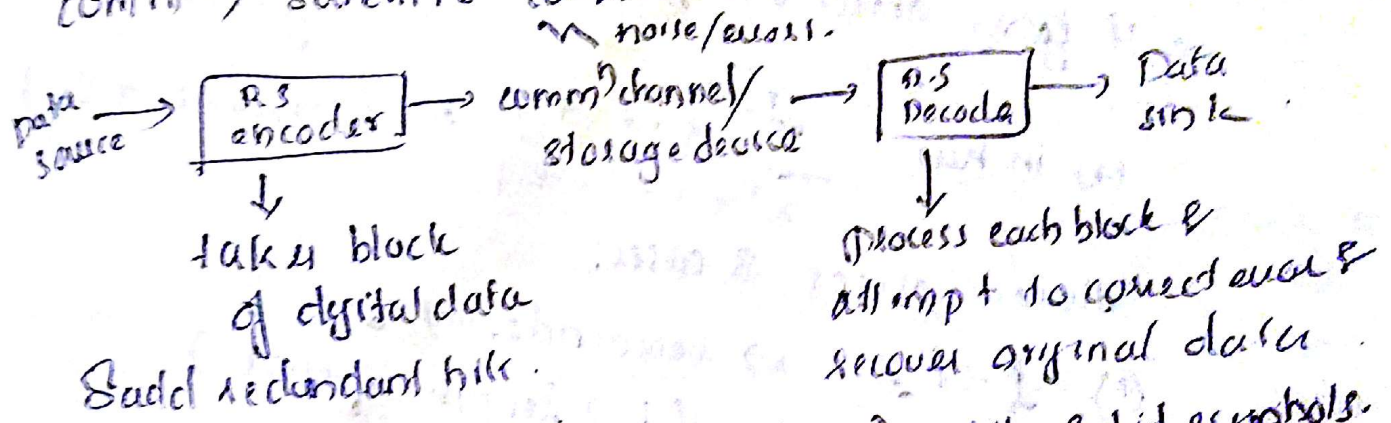 noise/errors.
Data source → RS encoder → commⁿ channel/ storage device → R.S Decoder → Data sink
↓ ↓
takes block
of digital data
& add redundant bits.
process each block &
attempt to correct error &
recover original data.
symbols.